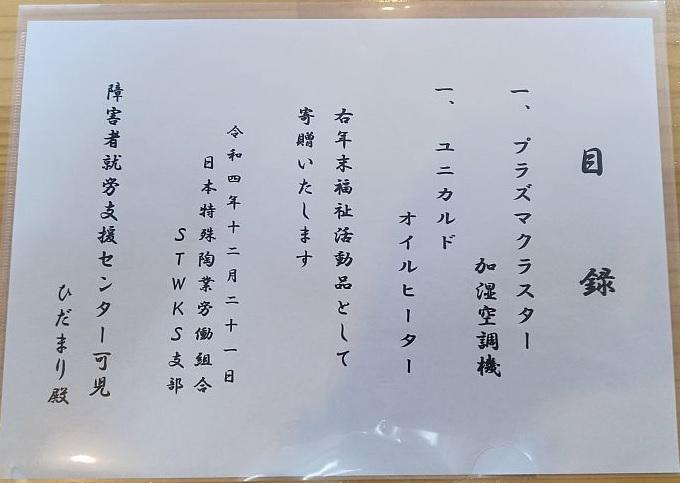 目録
一、プラズマクラスター
加湿空調機
一、ユニカルド
オイルヒーター
右年末福祉活動品として
寄贈いたします
令和四年十二月二十一日
日本特殊陶業労働組合
STWKS支部
障害者就労支援センター可児
ひだまり殿